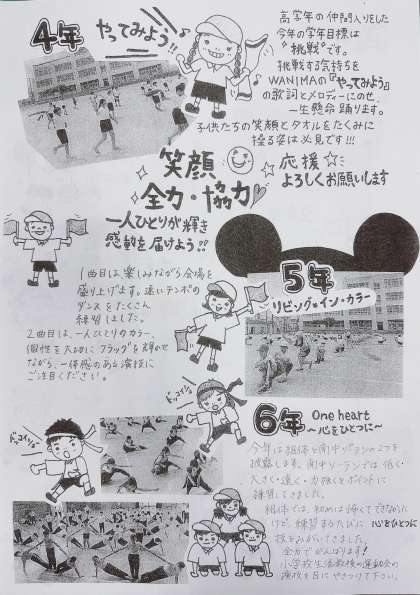 4年 やってみよう!!
高学年の仲間入りをした
今年の学年目標は
"挑戦"です。
挑戦する気持ちを
WANIMAの『やってみよう』
の歌詞とメロディーにのせ、
一生懸命 踊ります。
子供たちの笑顔とタオルをたくみに
操る姿は必見です!!!
笑顔
全力・協力
一人ひとりが輝き
感動を届けよう!!
応援
よろしくお願いします
1曲目は、楽しみながら会場を
盛り上げます。速いテンポの
ダンスをたくさん
練習しました。
2曲目は、一人ひとりのカラー、
個性を大切に フラッグを輝かせ
ながら、一体感のある演技に
ご注目ください。
5年
リビング・イン・カラー
ドッコイショ
ドッコイショ
6年 One heart
～心をひとつに～
今年は組体と南中ソーランの2つを
披露します。南中ソーランでは低く・
大きく・速く・力強くをポイントに
練習してきました。
組体では、初めは怖くてできなかった
けど、練習するたびに 心をひとつに
技をみがいてきました。
全力でがんばります!
小学校生活最後の運動会の
演技を目にやきつけて下さい。